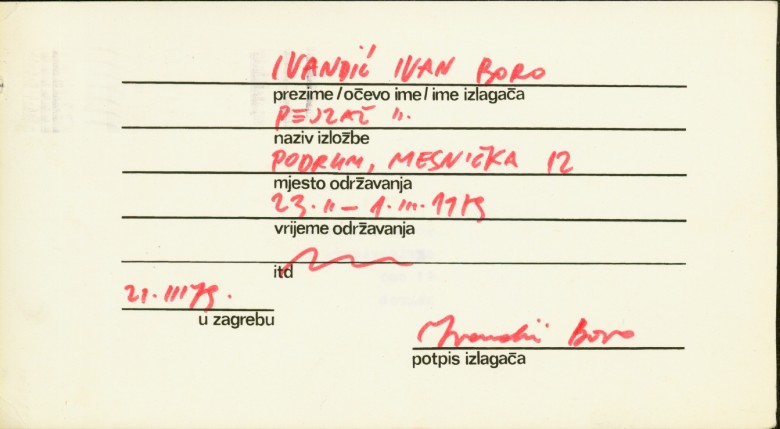 IVANDIĆ IVAN BORO
prezime/očevo ime/ime izlagača
PEJZAŽ II.
naziv izložbe
PODRUM, MESNIČKA 12
mjesto održavanja
23. II – 1. III. 1979
vrijeme održavanja
itd
21. III 79.
u zagrebu
Ivandić Boro
potpis izlagača